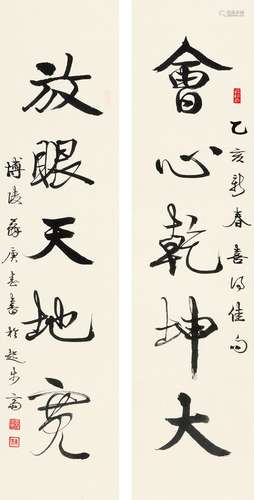 會心乾坤大
乙亥新春喜得佳句
放眼天地寬
博陵薛庚志書於起步齋